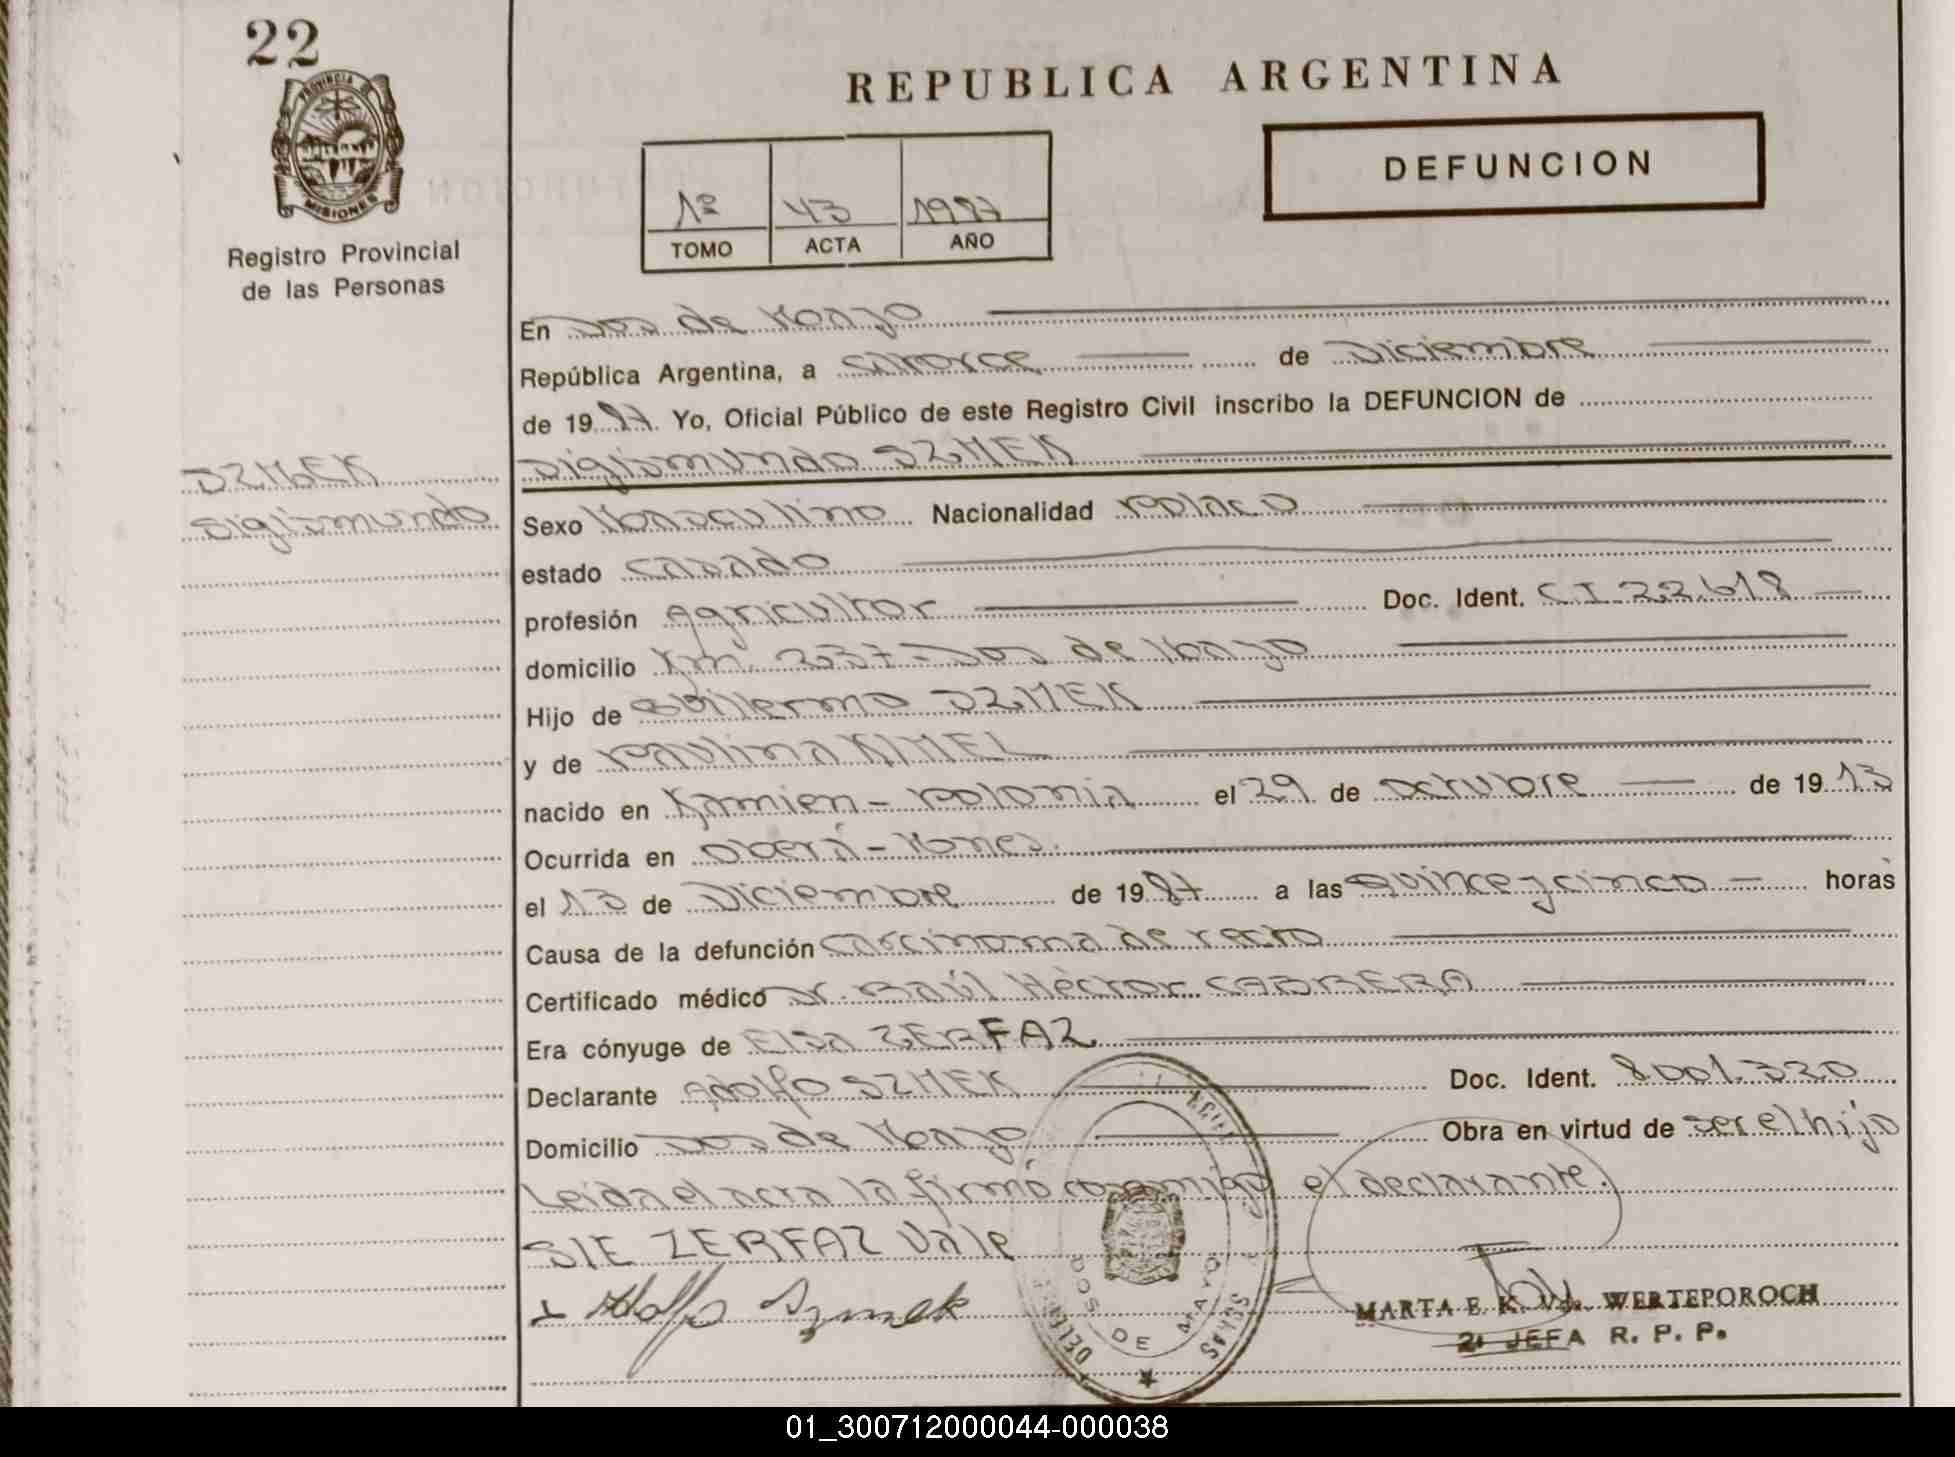 22
REPUBLICA ARGENTINA
PROVINCIA DE
MISIONES
DEFUNCION
1º 43 1987
TOMO ACTA AÑO
Registro Provincial
de las Personas
En Dos de Mayo
República Argentina, a catorce de Diciembre
de 1987. Yo, Oficial Público de este Registro Civil inscribo la DEFUNCION de
SZMEK
Sigismundo SZMEK
Sigismundo
Sexo Masculino Nacionalidad Polaco
estado casado
profesión Agricultor Doc. Ident. C I 22.618
domicilio Km. 237 - Dos de Mayo
Hijo de Guillermo SZMEK
y de Paulina KIMEL
nacido en Kamien - Polonia el 29 de octubre de 1913
Ocurrida en Oberá - Mones.
el 13 de Diciembre de 1987 a las quince y cinco horas
Causa de la defunción carcinoma de recto
Certificado médico Dr. Raúl Héctor CABRERA
Era cónyuge de Elsa ZERFAZ
Declarante Adolfo SZMEK Doc. Ident. 8001.320
Domicilio Dos de Mayo Obra en virtud de ser el hijo
Leída el acta la firmó conmigo el declarante.
S/E ZERFAZ Vale
Adolfo Szmek
DOS DE MAYO
MARTA E. K. Vda. WERTEPOROCH
2ª JEFA R. P. P.
01_300712000044-000038